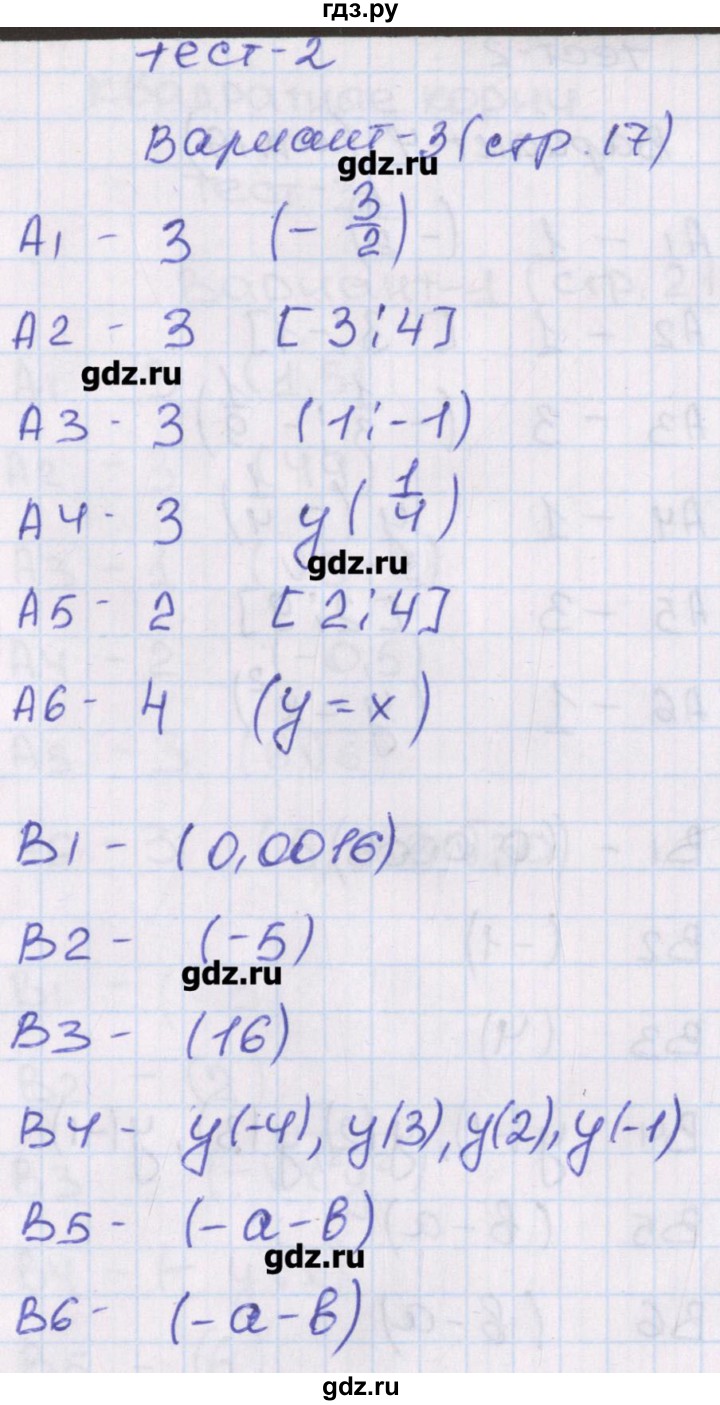 гдз.ру
тест-2
Вариант-3 (стр. 17)
gdz.ru
А1 - 3 (- 3/2)
А2 - 3 [3; 4]
gdz.ru
А3 - 3 (1; -1)
А4 - 3 y(1/4)
gdz.ru
А5 - 2 [2; 4]
А6 - 4 (y = x)
В1 - (0,0016)
В2 - (-5)
gdz.ru
В3 - (16)
В4 - y(-4), y(3), y(2), y(-1)
В5 - (-a-b)
gdz.ru
В6 - (-a-b)
gdz.ru